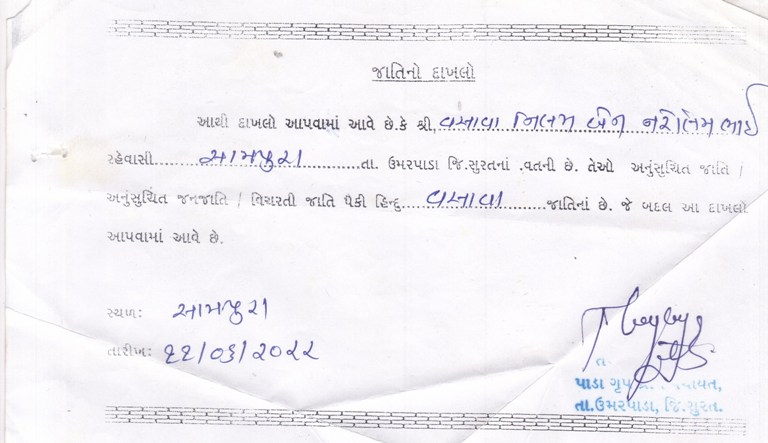 જાતિનો દાખલો
આથી દાખલો આપવામાં આવે છે.કે શ્રી, વસાવા નિલમ બેન નરોત્તમ ભાઈ
રહેવાસી આમપુરા તા. ઉમરપાડા જિ.સુરતનાં .વતની છે. તેઓ અનુંસુચિત જાતિ /
અનુંસુચિત જનજાતિ / વિચરતી જાતિ પૈકી હિન્દુ વસાવા જાતિનાં છે. જે બદલ આ દાખલો
આપવામાં આવે છે.
સ્થળ: આમપુરા
તારીખ: ૨૨/૦૬/૨૦૨૨
પાડા ગૃપ
તા.ઉમરપાડા, જિ.સુરત.